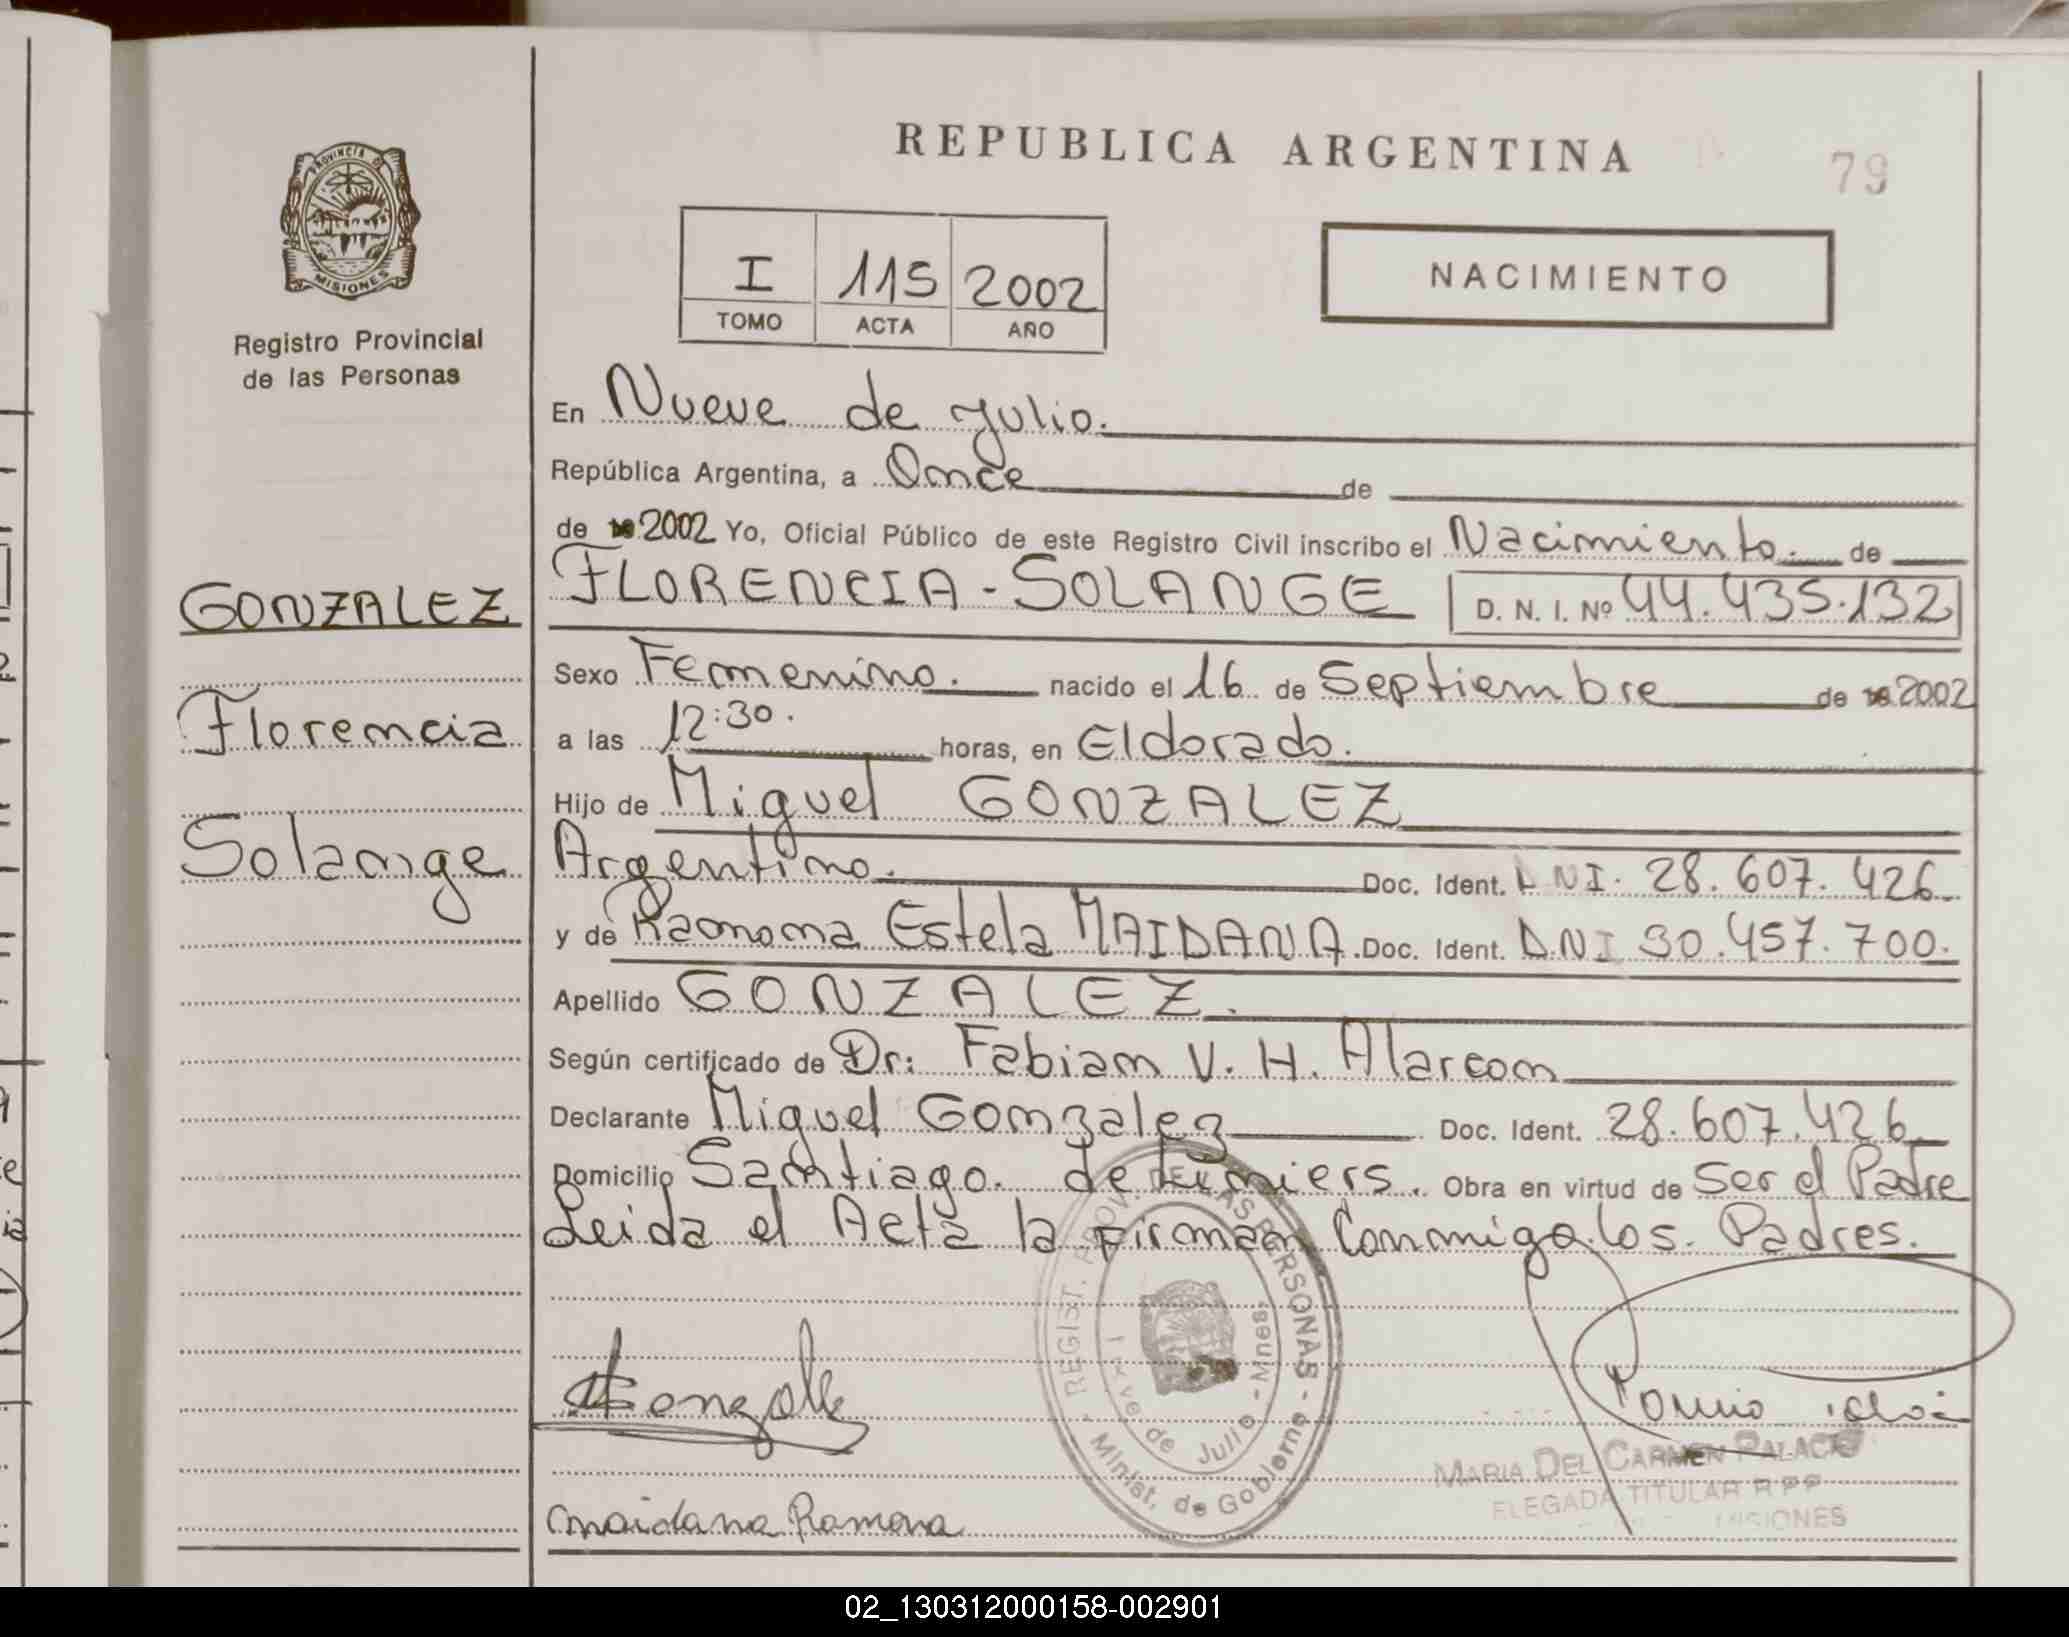 REPUBLICA ARGENTINA
79
PROVINCIA DE
MISIONES
Registro Provincial
de las Personas
I 115 2002
TOMO ACTA AÑO
NACIMIENTO
En Nueve de Julio.
República Argentina, a Once de
de 2002 Yo, Oficial Público de este Registro Civil inscribo el Nacimiento. de
GONZALEZ
FLORENCIA - SOLANGE D. N. I. Nº 44.435.132
Sexo Femenino. nacido el 16 de Septiembre de 2002
Florencia
a las 12:30. horas, en Eldorado.
Hijo de Miguel GONZALEZ
Solange
Argentino. Doc. Ident. DNI. 28.607.426
y de Ramona Estela MAIDANA. Doc. Ident. D.N I 30.457.700.
Apellido GONZALEZ.
Según certificado de Dr: Fabian V. H. Alarcon
Declarante Miguel Gonzalez Doc. Ident. 28.607.426
Domicilio Santiago. de Liniers. Obra en virtud de Ser el Padre
Leida el Acta la firman Conmigo los. Padres.
REGIST. PROV. DE LAS PERSONAS - Minist. de Gobierno -
Julio - Mnes.
Maidana Ramona
MARIA DEL CARMEN PALACIO
DELEGADA TITULAR R P P
MISIONES
02_130312000158-002901